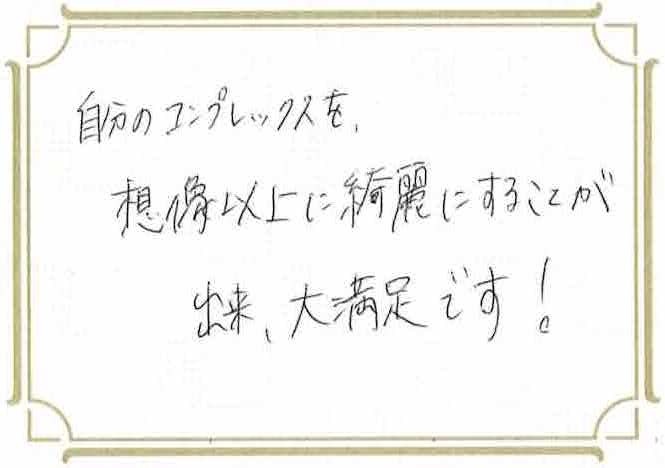 自分のコンプレックスを、
想像以上に綺麗にすることが
出来、大満足です!